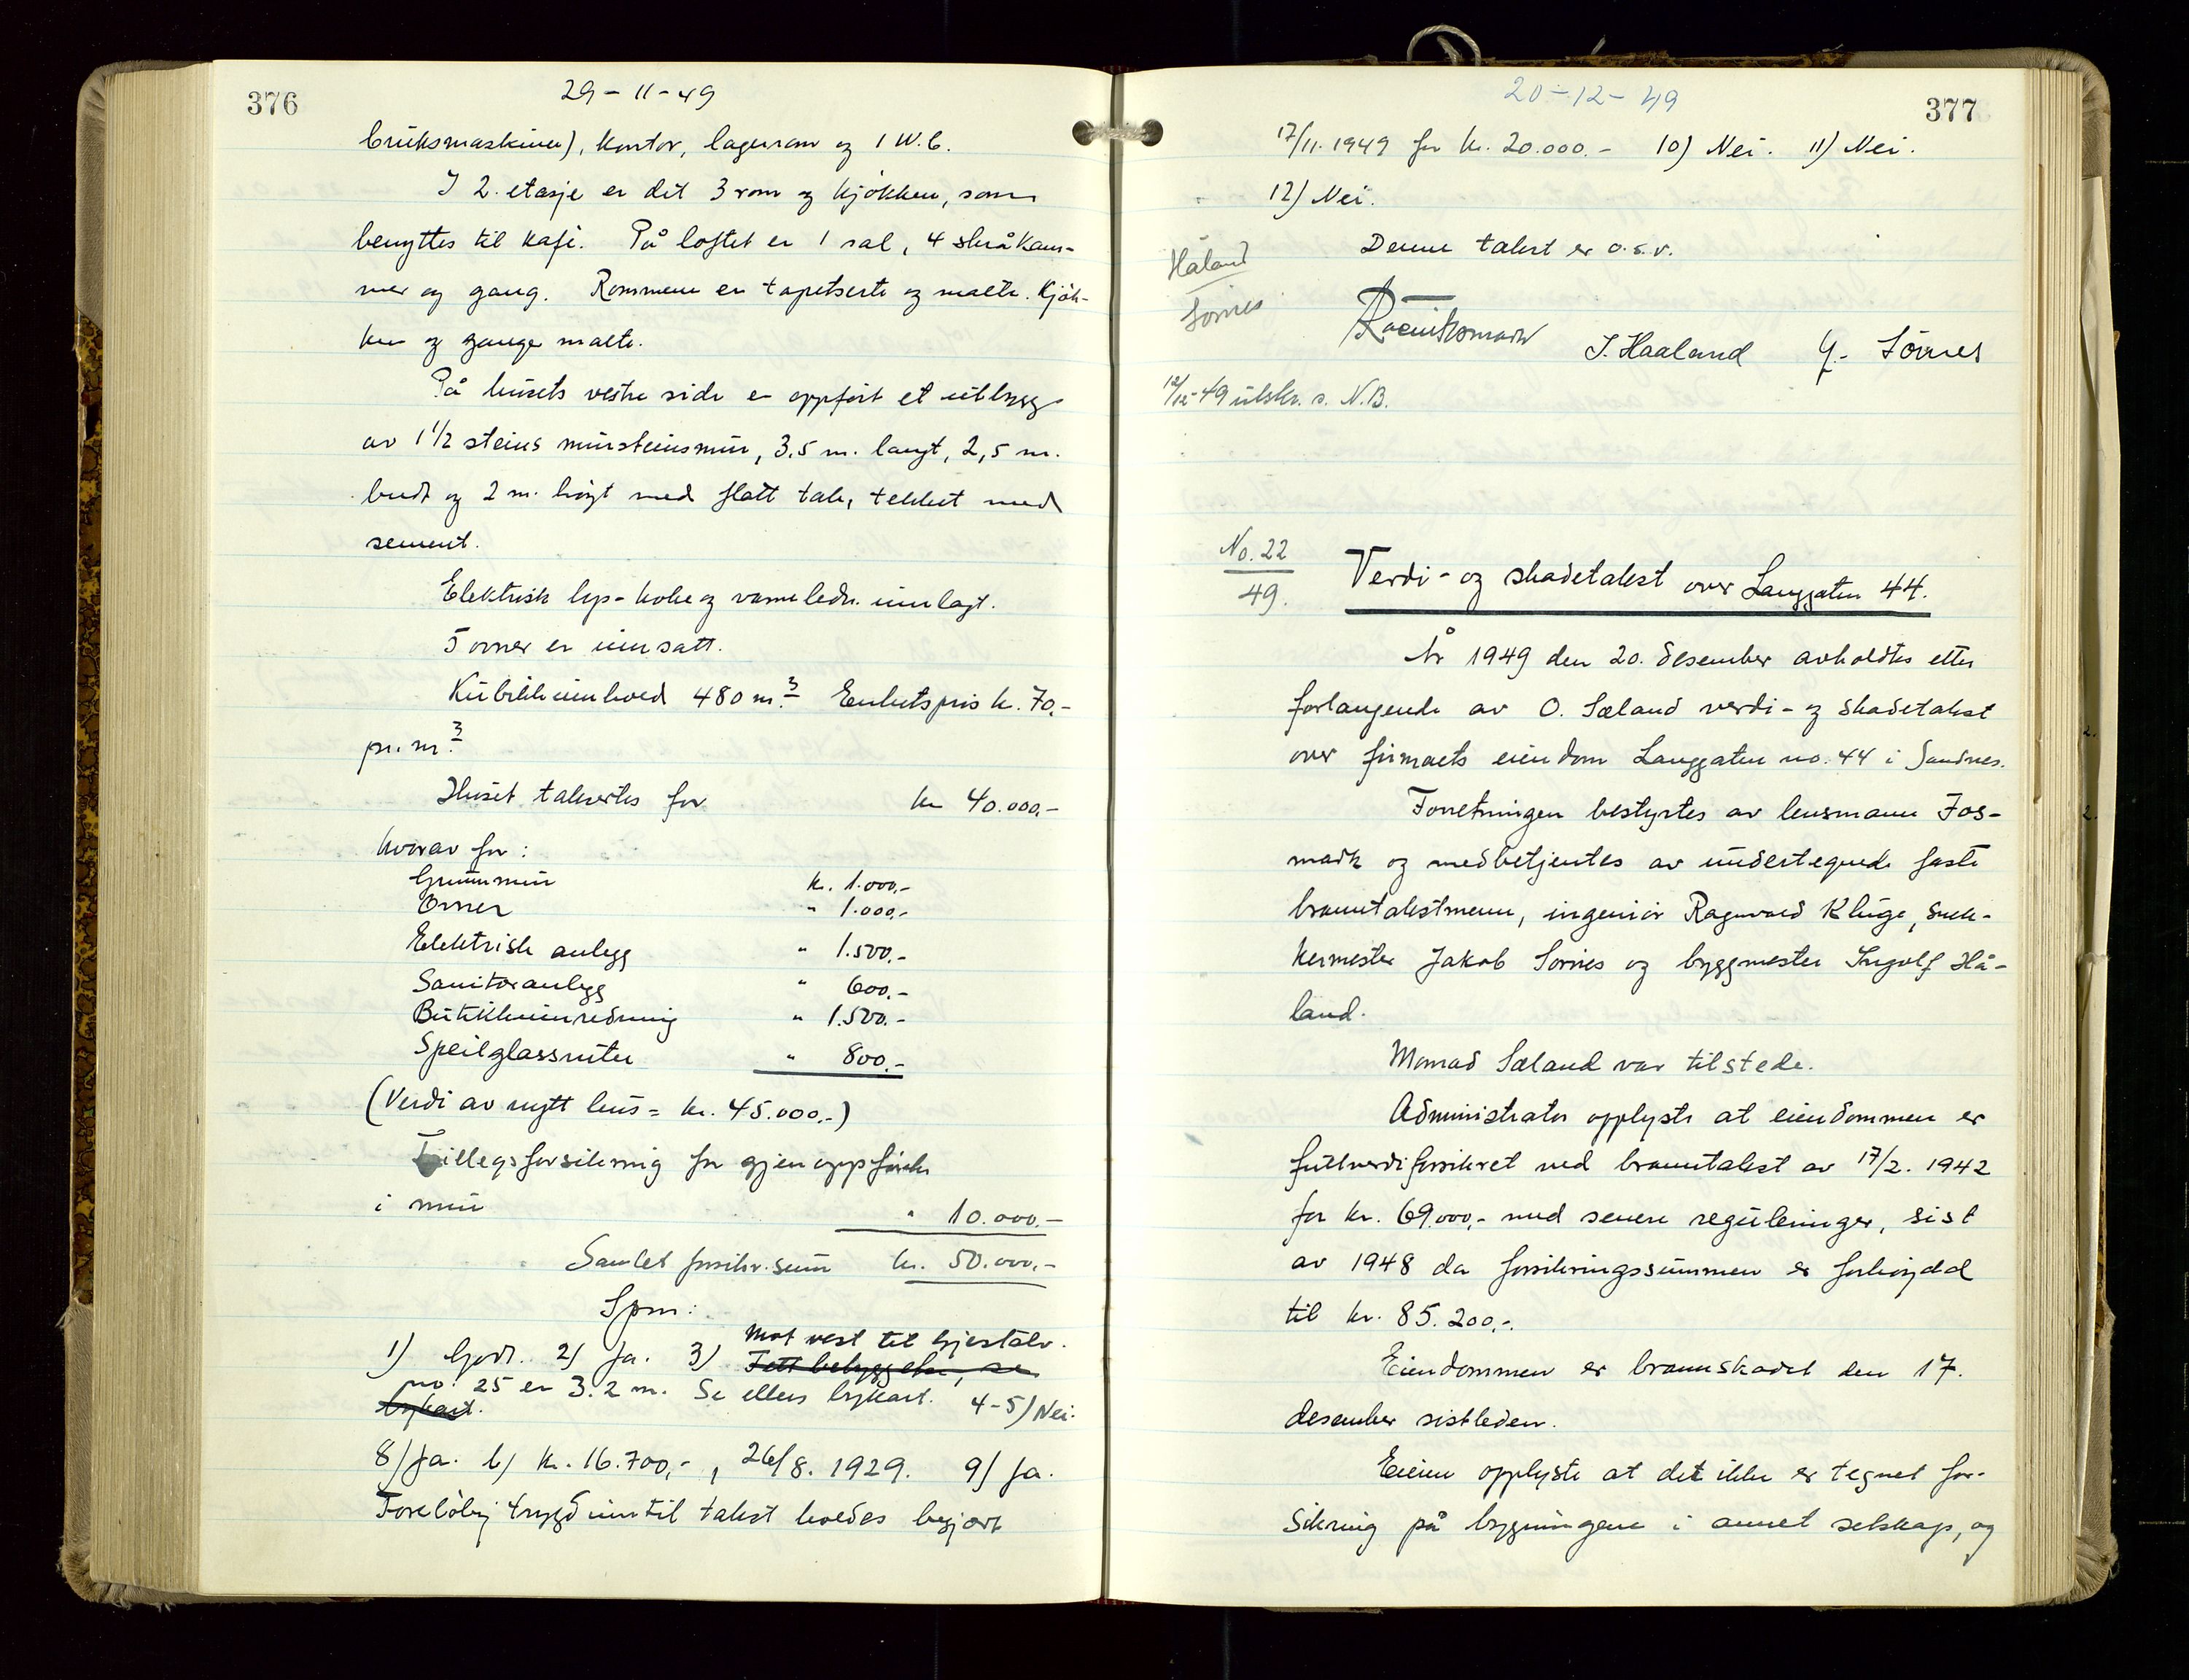 376
29-11-49
bruksmaskiner), kontor, lagerrom og 1 W.C.
I 2. etasje er det 3 rom og kjøkken, som
benyttes til kafé. På loftet er 1 sal, 4 skråkam-
mer og gang. Rommene er tapetserte og malte. Kjøk-
ken og ganger malte.
På husets vestre side er oppført et utbygg
av 1 1/2 steins mursteinsmur, 3,5 m. langt, 2,5 m.
bredt og 2 m. høyt med flatt tak, tekket med
sement.
Elektrisk lys- koke og varmeledn. innlagt.
5 ovner er innsatt.
Kubikkinnhold 480 m.3 Enhetspris kr. 70,-
pr. m.3
Huset takseres for kr 40.000,-
hvorav for:
Grunnmur kr. 1.000,-
Ovner " 1.000,-
Elektrisk anlegg " 1.500,-
Sanitæranlegg " 600,-
Butikkinnredning " 1.500,-
Speilglassruter " 800,-
(Verdi av nytt hus = kr. 45.000,-)
Tilleggsforsikring for gjenoppførelse
i mur " 10.000,-
Samlet forsikr.sum kr. 50.000,-
Spm:
mot vest til
1) Godt. 2) Ja. 3) Tett bebyggelse, se
no. 25 er 3.2 m. Se ellers bykart. 4-5) Nei.
bykart.
8) Ja. b) kr. 16.700,-, 26/8. 1929. 9) Ja.
Foreløbig trygd inntil takst holdes begjært
20-12-49
377
17/11. 1949 for kr. 20.000.- 10) Nei. 11) Nei.
12) Nei.
Denne takst er o.s.v.
Håland
Sørnes
I. Haaland J. Sörnes
12/12-49 utskr. s. N.B.
No. 22
49.
Verdi- og skadetakst over Langgaten 44.
År 1949 den 20. desember avholdtes etter
forlangende av O. Sæland verdi- og skadetakst
over firmaets eiendom Langgaten no. 44 i Sandnes.
Forretningen bestyrtes av lensmann Fos-
mark og medbetjentes av undertegnede faste
branntakstmenn, ingeniør Ragnvald Kluge, snek-
kermester Jakob Sørnes og byggmester Ingolf Hå-
land.
Monrad Sæland var tilstede.
Administrator opplyste at eiendommen er
fullverdiforsikret ved branntakst av 17/2. 1942
for kr. 69.000,- med senere reguleringer, sist
av 1948 da forsikringssummen er forhøyded
til kr. 85.200,-.
Eiendommen er brannskadet den 17.
desember sistleden.
Eieren opplyste at det ikke er tegnet for-
sikring på bygningene i annet selskap, og